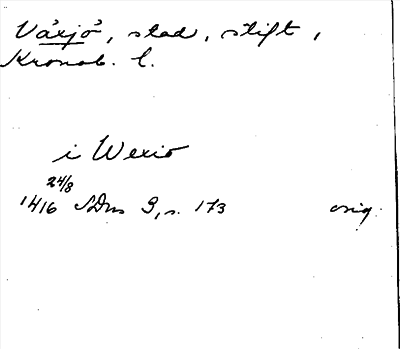 Växjö, stad, stift,
Kronob. l.
i Wexio
24/8
1416 SDns 3, s. 173 orig.